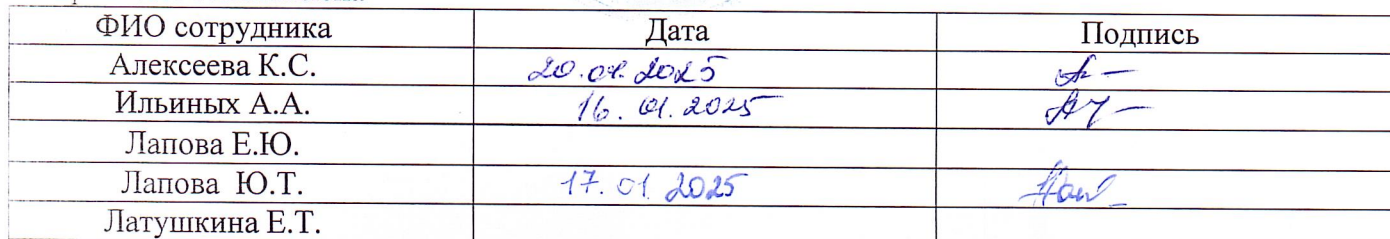 ФИО сотрудника Дата Подпись
Алексеева К.С. 20.01.2025
Ильиных А.А. 16.01.2025
Лапова Е.Ю.
Лапова Ю.Т. 17.01.2025
Латушкина Е.Т.